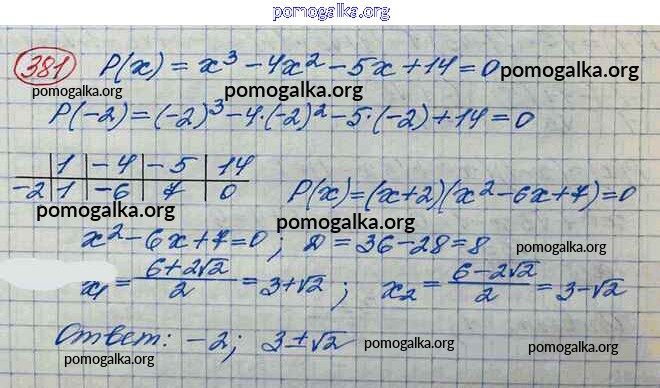 pomogalka.org
381 P(x) = x³ - 4x² - 5x + 14 = 0 pomogalka.org
pomogalka.org pomogalka.org
P(-2) = (-2)³ - 4·(-2)² - 5·(-2) + 14 = 0
1 | -4 | -5 | 14
-2 | 1 | -6 | 7 | 0 P(x) = (x+2)(x² - 6x + 7) = 0
pomogalka.org pomogalka.org
x² - 6x + 7 = 0; D = 36 - 28 = 8 pomogalka.org
x₁ = (6+2√2)/2 = 3+√2; x₂ = (6-2√2)/2 = 3-√2
Ответ: -2; 3±√2
pomogalka.org pomogalka.org pomogalka.org